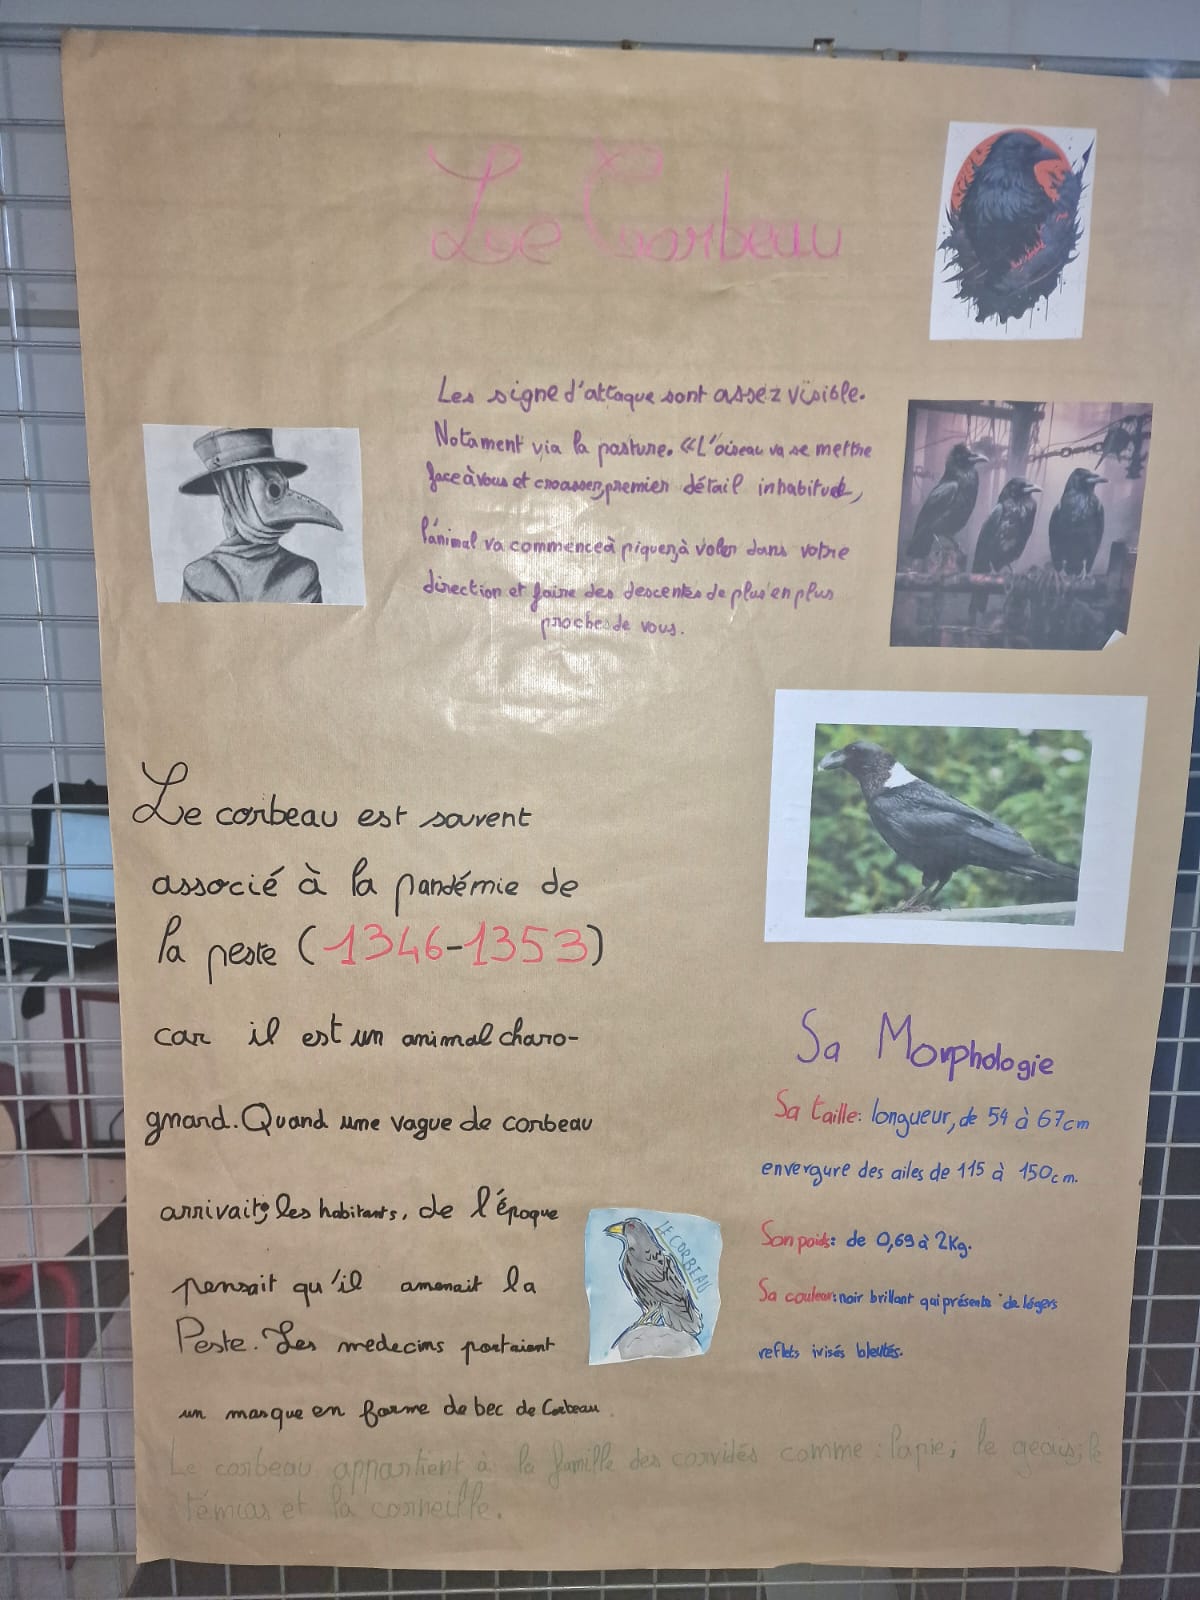 Le Corbeau
Les signe d'attaque sont assez visible.
Notament via la posture. «L'oiseau va se mettre
face à vous et croasser, premier détail inhabituel,
l'animal va commence à piquer, à voler dans votre
direction et faire des descentes de plus en plus
proches de vous.
Le corbeau est souvent
associé à la pandémie de
la peste (1346-1353)
car il est un animal charo-
gnard. Quand une vague de corbeau
arrivait; les habitants, de l'époque
pensait qu'il amenait la
Peste. Les medecins portaient
un masque en forme de bec de Corbeau.
LE CORBEAU
Sa Morphologie
Sa taille: longueur, de 54 à 67cm
envergure des ailes de 115 à 150cm.
Son poids: de 0,69 à 2Kg.
Sa couleur: noir brillant qui présente de légers
reflets irisés bleutés.
Le corbeau appartient à la famille des corvidés comme: la pie; le geais; le
témias et la corneille.